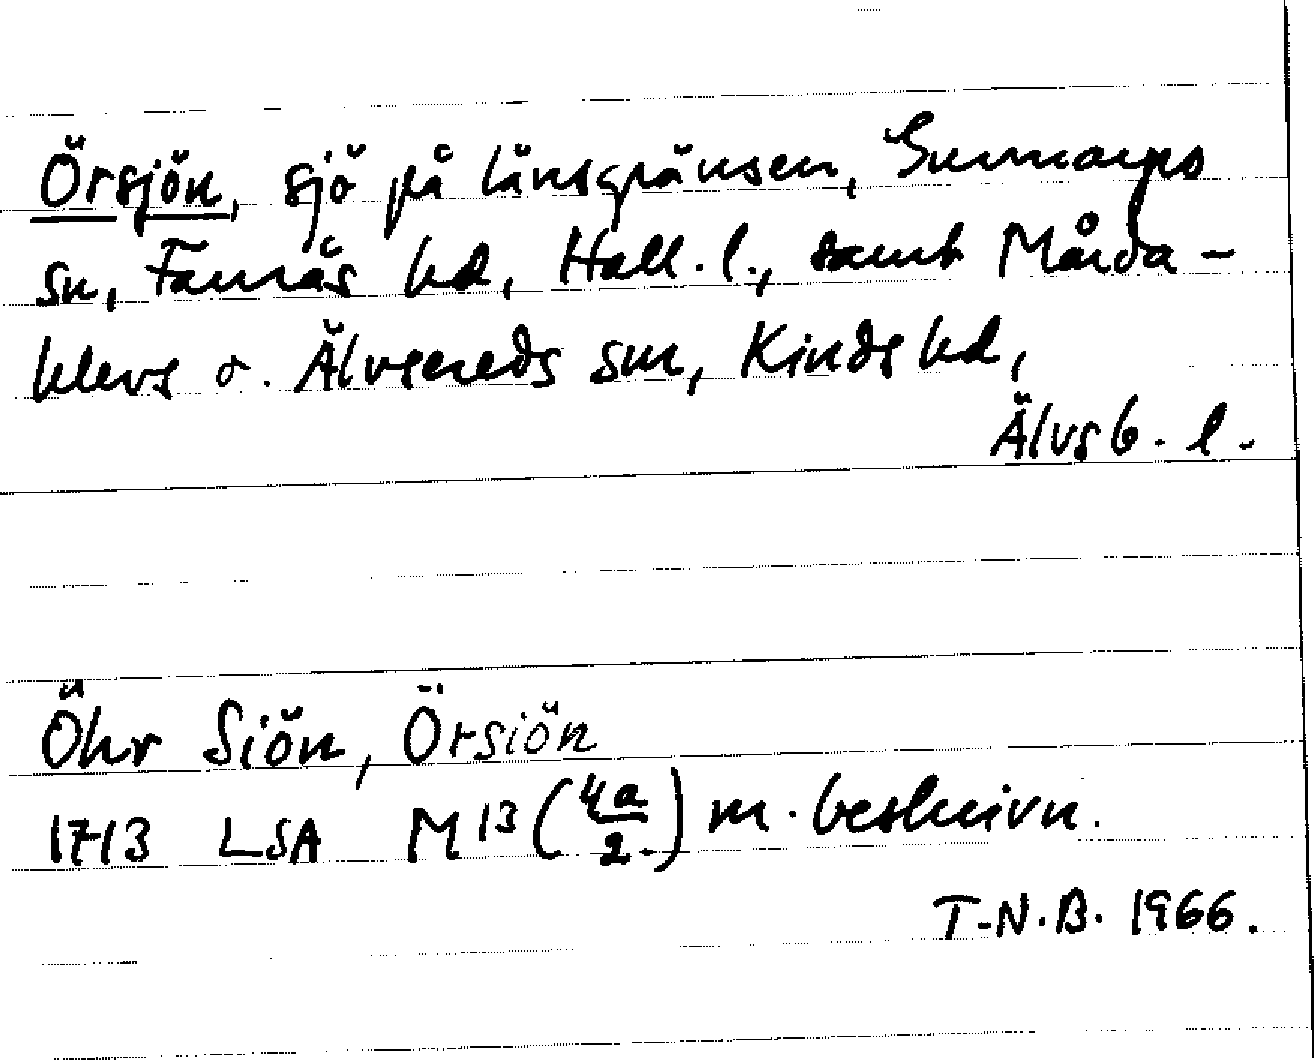 Örsjön, sjö på länsgränsen, Gunnarps
sn, Faurås hd, Hall. l., samt Mårda-
klevs o. Älvsereds snr, Kinds hd,
Älvsb. l.
Öhr Siön, Örsiön
1713 LSA M13 (4a/2) m. beskrivn.
T-N.B. 1966.